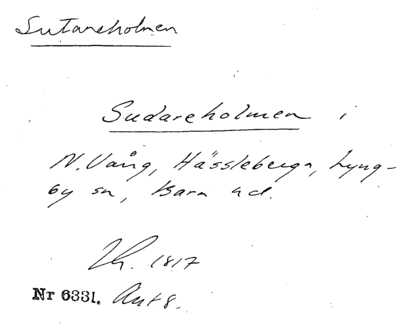 Sutareholmen
Sudareholmen i
N. Vång, Hässleberga, Lyng-
by sn, Bara hd.
Lh. 1817
Nr 6331. Ant 8.